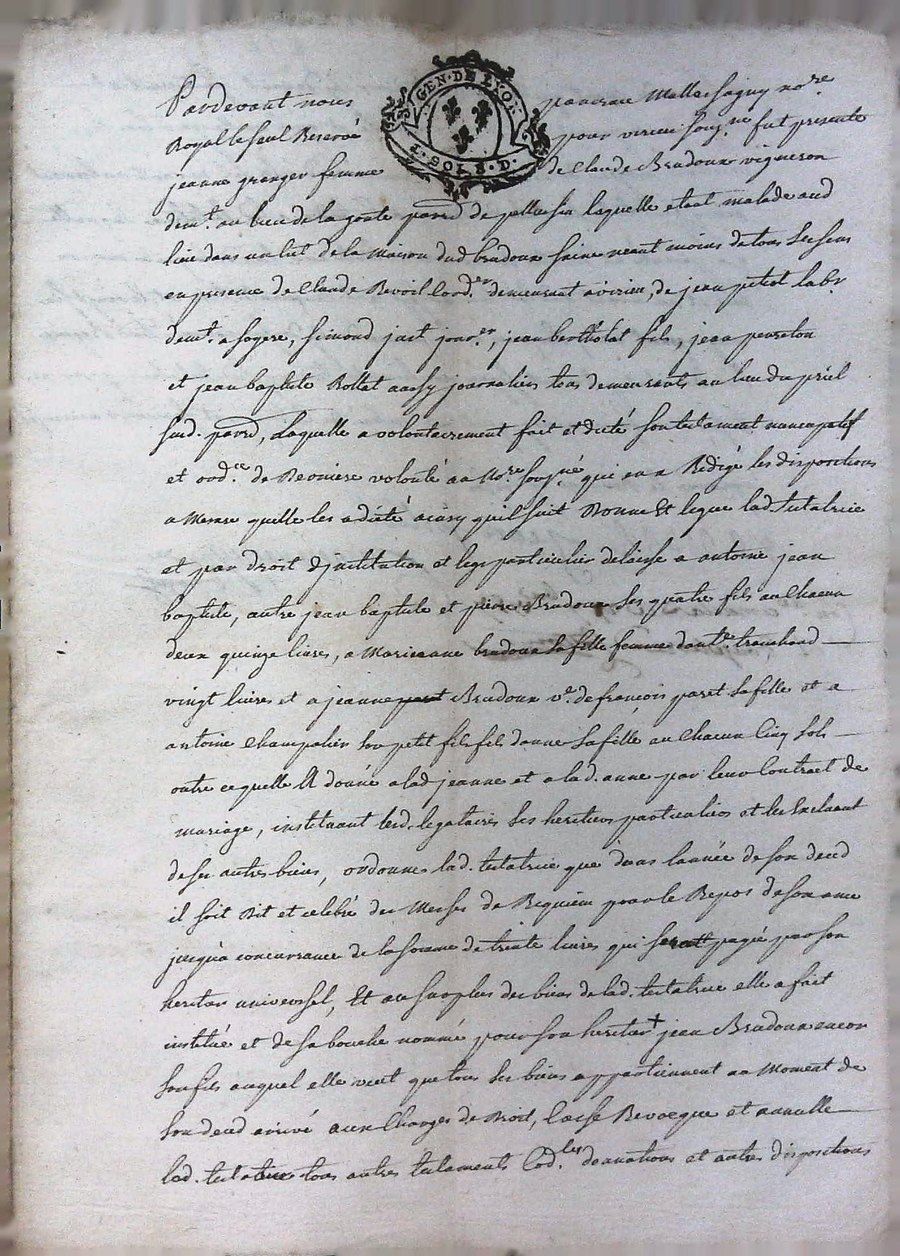 GEN·DE LYON
2·SOLS·D·
Pardevant nous pancrace Mallassagny no.re
Royal le seul Reservé pour virieu souz.né fut presente
jeanne granger femme de Claude Bradoux vigneron
demt. au lieu de la goate parr.d de pellussin laquelle etant malade aud
lieu dans un lit de la Maison dud bradoux saine neant moins de tous ses sens
en presence de Claude Revoil Cord.er demeurant a virieu, de jean petiot labr
demt. a sogere, simond just jour.er, jean bertholat fils, jean peureton
et jean baptiste Rollat aussy journaliers tous demeurants au lieu du priel
sud. parr.d, Laquelle a volontairement fait et dicté son testament nuncupatif
et ord.ce de Derniere volonté au No.re souz.né qui en a Redigé les dispositions
a Mesure quelle les a dicté ainsy quil suit Donne Et legue lad. testatrice
et par droit d'jnstitution et legs particulier delaisse a antoine jean
baptiste, autre jean baptiste et pierre Bradoux ses quatre fils au Chacun
deux quinze livres, a Marianne bradoux sa fille femme dant.e trouchard
vingt livres et a jeanne Bradoux v.e de francois paret sa fille et a
antoine Champalier son petit fils fils danne sa fille au Chacun Cinq sols
outre ce quelle A donné a lad jeanne et a lad. anne par leur Contract de
mariage, instituant lesd. legataires ses heritiers particuliers et les Excluant
de ses autres biens, ordonne lad. testatrice que dans lannée de son deced
il soit Dit et celebré des Messes de Requiem pour le Repos de son ame
jusqua concurrance de la somme de trente livres qui sera payée par son
heritier universel, Et au surplus des biens de lad. testatrice elle a fait
institué et de sa bouche nommé pour son heritier + jean Bradoux encor
son fils auquel elle veut que tous ses biens appartiennent au Moment de
son deced arrivé aux Charges de Droit, Casse Revocque et annulle
lad. testatrice tous autres testaments Cod.les donnations et autres dispositions